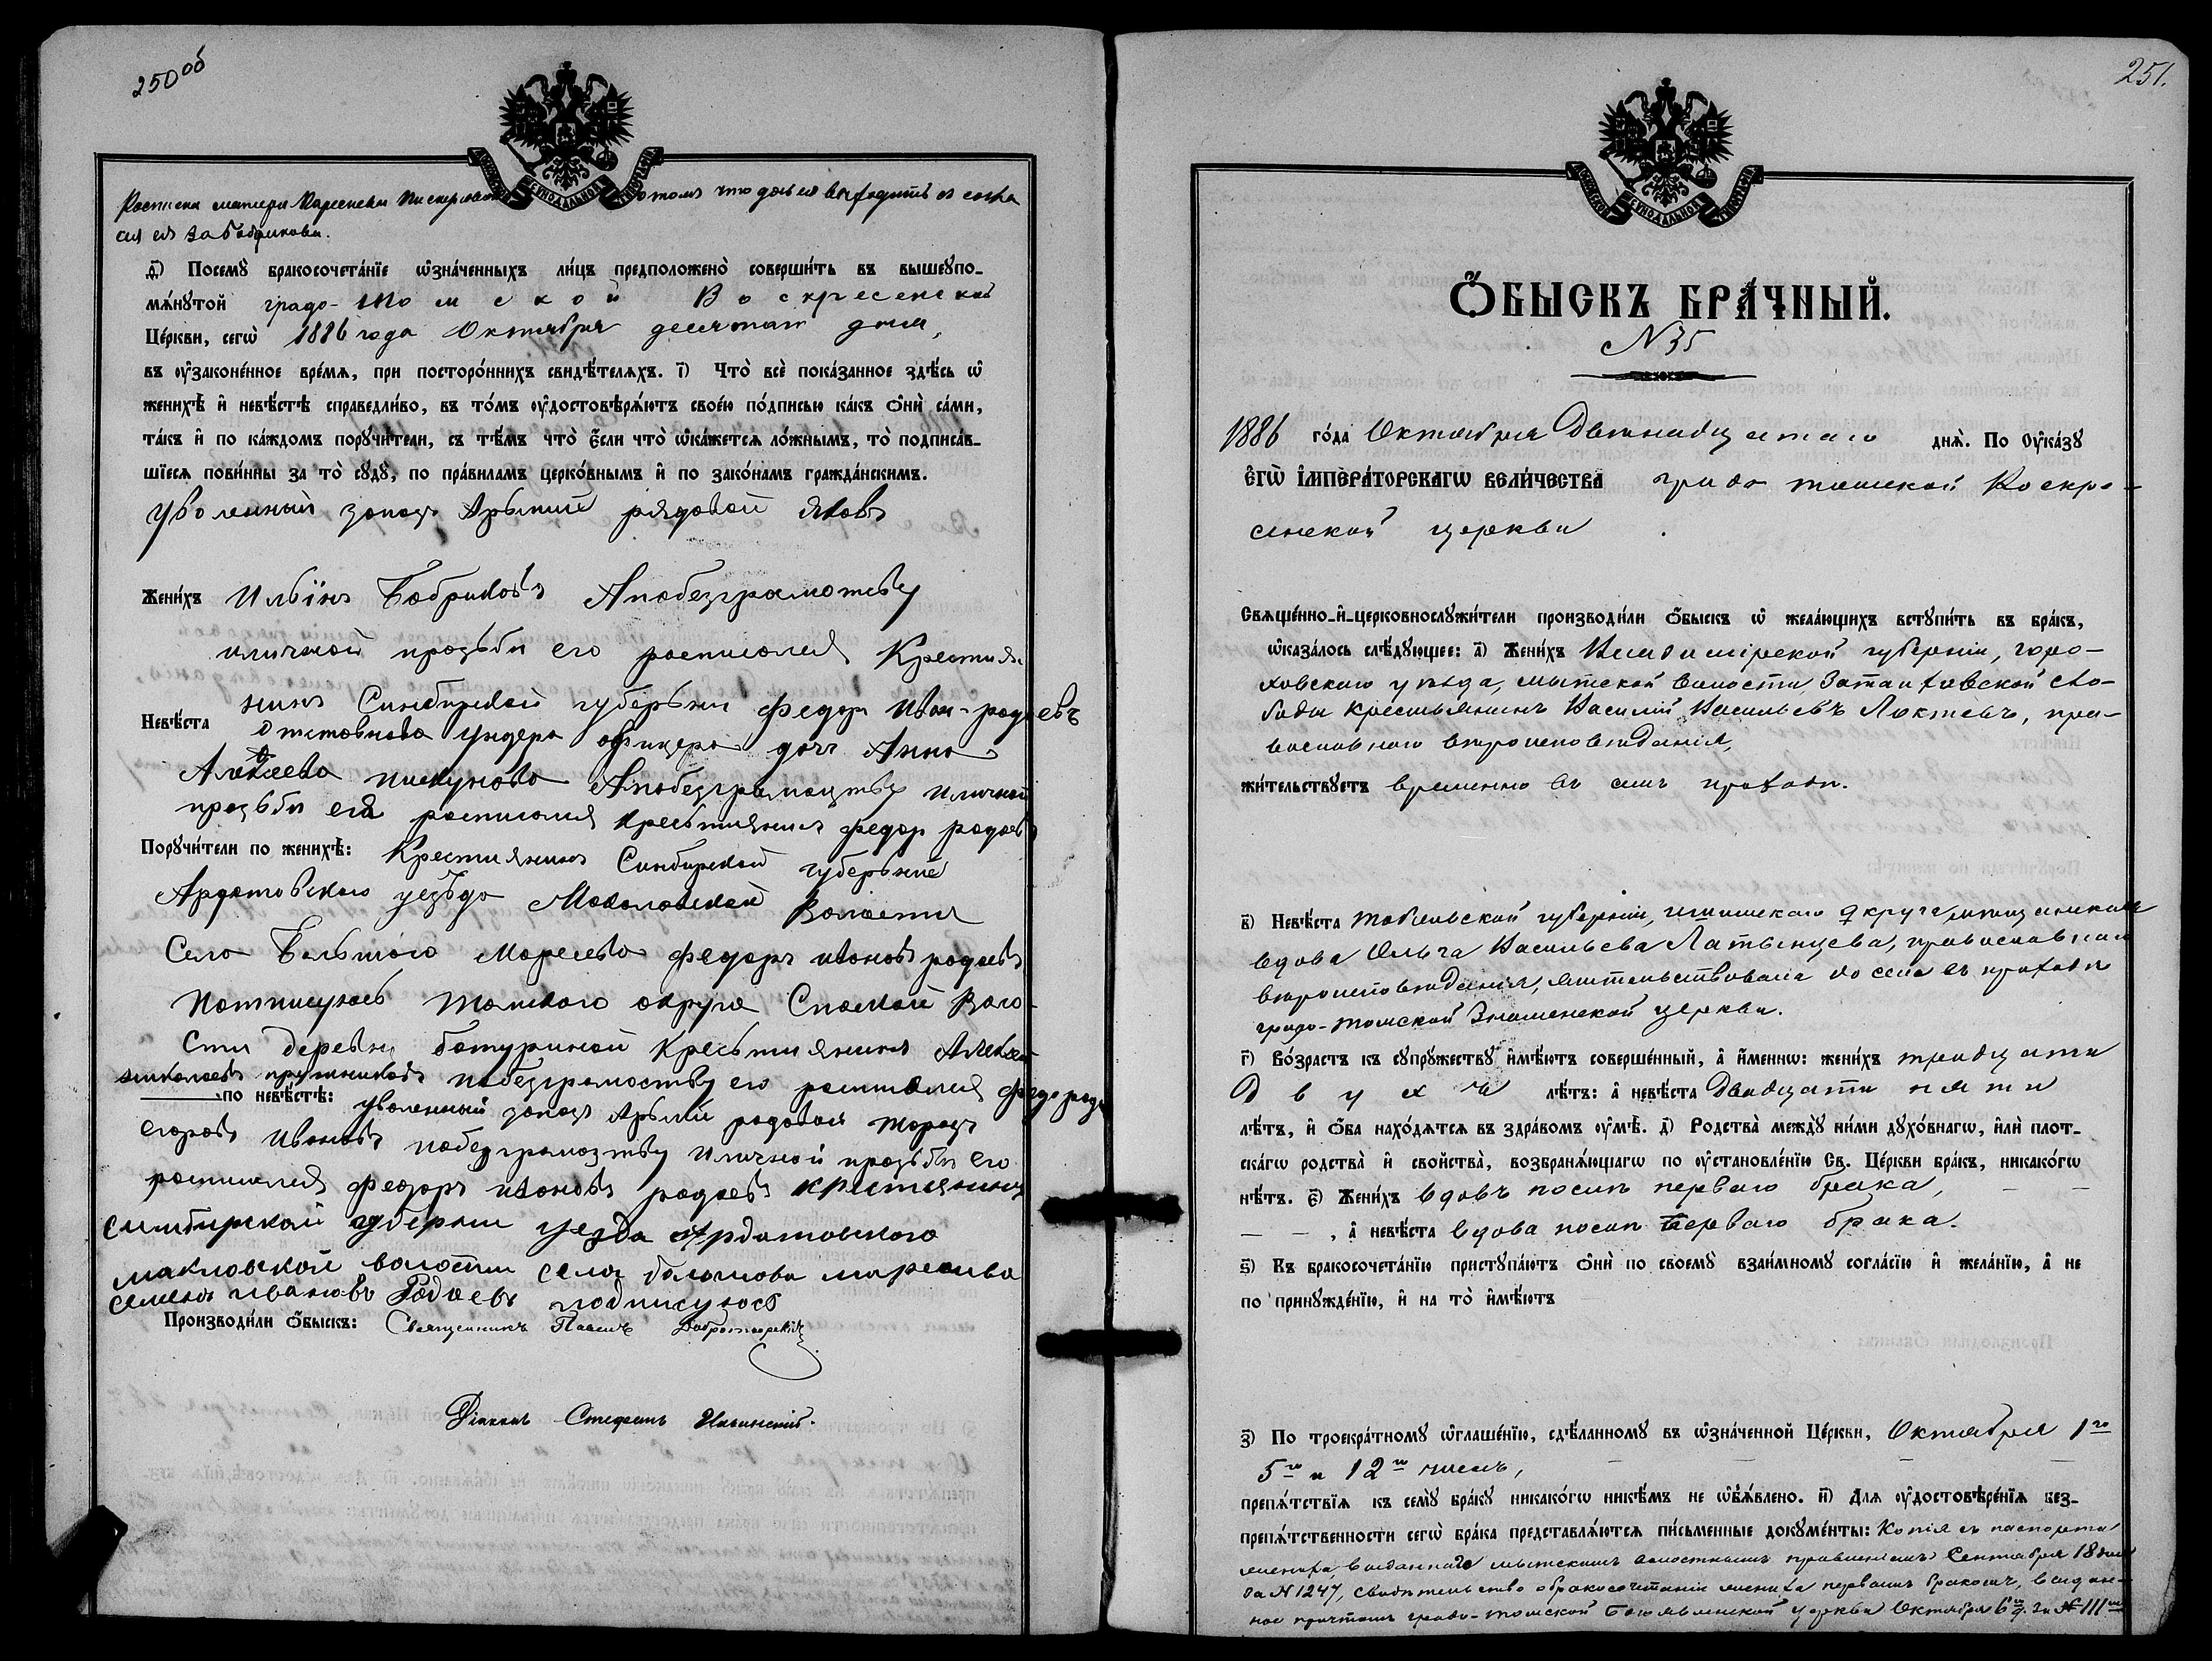 250 об
Росписка матери о томъ что дочь ея выходитъ съ согла
сія ея за Бобрикова.
д҃) Посемꙋ̀ бракосочета́нїе ѡ҆зна́ченныхъ ли́цъ предположено̀ соверши́ть въ вышеꙋпо-
мѧ́нꙋтой градо-Томской Воскресенской
Це́ркви, сегѡ̀ 1886 года Октября десятаго дня,
въ ᲂу҆законе́нное вре́мѧ, при посторо́ннихъ свидѣ́телѧхъ. і҃) Что̀ всѐ пока́занное здѣ́сь ѡ҆
женихѣ̀ и҆ невѣ́стѣ справедли́во, въ то́мъ ᲂу҆достовѣрѧ́ютъ свое́ю по́дписью ка́къ ѻ҆нѝ са́ми,
та́къ и҆ по ка́ждомъ порꙋчи́тели, съ тѣ́мъ что̀ є҆́сли что̀ ѡ҆ка́жетсѧ ло́жнымъ, то̀ подписа́в-
шїесѧ пови́нны за то̀ сꙋдꙋ̀, по пра́виламъ церко́внымъ и҆ по зако́намъ гражда́нскимъ.
уволенный запасъ Армiй рядовой яковъ
Жени́хъ Ильiнъ Бобриковъ Апобезграмотству
иличной прозьби его росписался Крестиян
нинъ Синбирской губерьни федор Иван-родаевъ
Невѣ́ста отставнова Ундера офицера дочь Анна
Алексеева пискунова Апобезграмотству иличной
прозьби ея росписался крестиянинъ федор родаевъ
Порꙋчи́тели по женихѣ̀: Крестиянинъ Синбирской губерьние
Ардатовского уезьда Маколовской Волости
Село Большого Маресева федоръ ивановъ родаевъ
Потписуюсь томского округа Спаской Воло-
сти деревни батуриной Кресьтиянинъ Алексей
николаевъ побезграмоству его росписался федор родаевъ
по невѣ́стѣ: уволенный запасъ Армiи радовой
егоровъ Ивановъ побезграмотву иличной прозьби его
росписался федоръ ивановъ родаевъ крестиянинъ
симбирской губернии уезда Ардатовского
макловской волости села большова маресива
семенъ ивановъ Родаевъ подписуюсь
Производи́ли ѻ҆́быскъ: Священникъ Павелъ
Дiаконъ Стефанъ Ильинскiй.
251.
Ѻ҆́БЫСКЪ БРА́ЧНЫЙ.
N 35
1886 го́да Октября Двенадцатаго днѧ̀. По Ѹ҆ка́зꙋ
Е҆ГѠ̀ І҆МПЕРА́ТОРСКАГѠ ВЕЛИ́ЧЕСТВА градо томской Воскре-
сенской церкви
Свѧще́нно-и҆-церковнослꙋжи́тели производи́ли ѻ҆́быскъ ѡ҆ жела́ющихъ встꙋпи́ть въ бра́къ,
ѡ҆каза́лось слѣ́дꙋющее: а҃) Жени́хъ Владимiрской губернiи, горо-
ховскаго уѣзда, мытской волости, Затаиховской сло-
боды крестьянинъ Василiй Васильевъ Локтевъ, пра-
вославнаго вѣроисповѣданiя,
жи́тельствꙋетъ временно въ семъ приходѣ.
в҃) Невѣ́ста тобольской губернiи, ишимскаго округа,
вдова Ольга Васильева Латынцева, православнаго
вѣроисповѣданiя, жительствовала до сего въ приходѣ
градо-томской Знаменской церкви.
г҃) Во́зрастъ къ сꙋпрꙋ́жествꙋ и҆мѣ́ютъ соверше́нный, а҆ и҆́менно: жени́хъ тридцати
двухъ лѣ́тъ: а҆ невѣ́ста двадцати пяти
лѣ́тъ, и҆ ѻ҆́ба нахо́дѧтсѧ въ здра́вомъ ᲂу҆мѣ̀. д҃) Родства̀ междꙋ̀ ни́ми дꙋхо́внагѡ, и҆лѝ плот-
ска́гѡ родства̀ и҆ свойства̀, возбранѧ́ющагѡ по ᲂу҆становле́нїю Св. Це́ркви бра́къ, никако́гѡ
нѣ́тъ. є҃) Жени́хъ вдовъ послѣ перваго брака,
— — , а҆ невѣ́ста вдова послѣ перваго брака.
ѕ҃) Къ бракосочета́нїю пристꙋпа́ютъ ѻ҆нѝ по своемꙋ̀ взаи́мномꙋ согла́сїю и҆ жела́нїю, а҆ не
по принꙋжде́нїю, и҆ на то̀ и҆мѣ́ютъ
з҃) По троекра́тномꙋ ѡ҆глаше́нїю, сдѣ́ланномꙋ въ ѡ҆зна́ченной Це́ркви, Октября 1го
5го и 12го числъ,
препѧ́тствїѧ къ семꙋ̀ бра́кꙋ никако́гѡ никѣ́мъ не ѡ҆б̾ѧ́влено. и҃) Длѧ ᲂу҆достовѣре́нїѧ без-
препѧ́тственности сегѡ̀ бра́ка представлѧ́ютсѧ пи́сьменные докꙋме́нты: Копiя съ паспорта
жениха, выданнаго мытскимъ волостнымъ правленiемъ Сентября 18
за N 1247, свидѣтельство о бракосочетанiи жениха первымъ бракомъ, выдан-
ное причтомъ градо-томской Богоявленской церкви Октября 6го за № 111